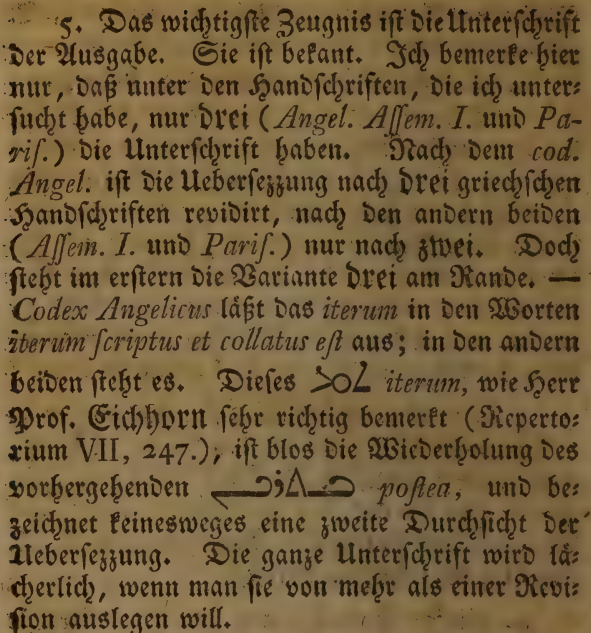 5. Das wichtigſte Zeugnis iſt die Unterſchrift
der Ausgabe. Sie iſt bekant. Ich bemerke hier
nur, daß unter den Handſchriften, die ich unter⸗
ſucht habe, nur drei (Angel. Aſſem. I. und Pa-
riſ.) die Unterſchrift haben. Nach dem cod.
Angel. iſt die Ueberſezzung nach drei griechſchen
Handſchriften revidirt, nach den andern beiden
(Aſſem. I. und Pariſ.) nur nach zwei. Doch
ſteht im erſtern die Variante drei am Rande. —
Codex Angelicus läßt das iterum in den Worten
iterum ſcriptus et collatus eſt aus; in den andern
beiden ſteht es. Dieſes ܬܘܒ iterum, wie Herr
Prof. Eichhorn ſehr richtig bemerkt (Reperto⸗
rium VII, 247.), iſt blos die Wiederholung des
vorhergehenden ܒܬܪܟܢ poſtea, und be⸗
zeichnet keinesweges eine zweite Durchſicht der
Ueberſezzung. Die ganze Unterſchrift wird lä⸗
cherlich, wenn man ſie von mehr als einer Revi⸗
ſion auslegen will.